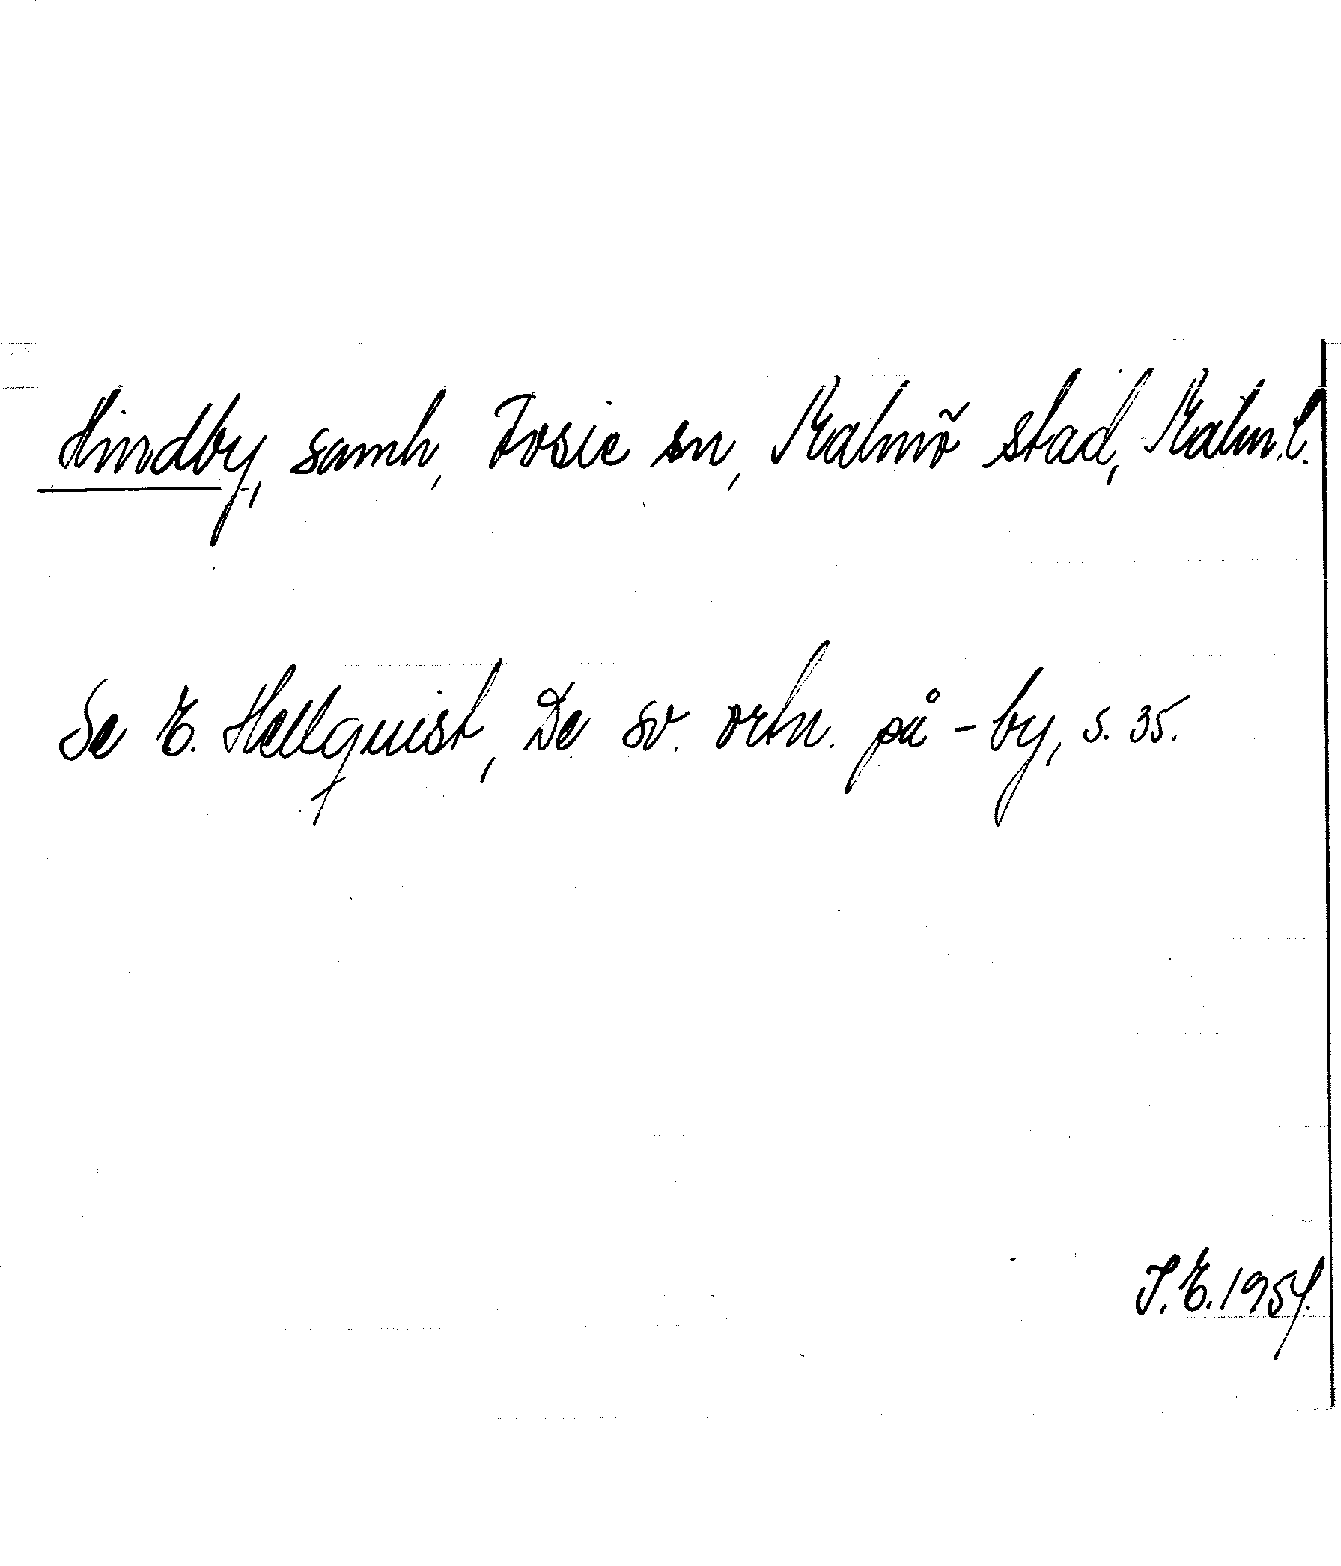 Hindby, samh, Fosie sn, Malmö stad, Malm.l.
Se E. Hellquist, De sv. ortn. på -by, s. 35.
I.E. 1954.